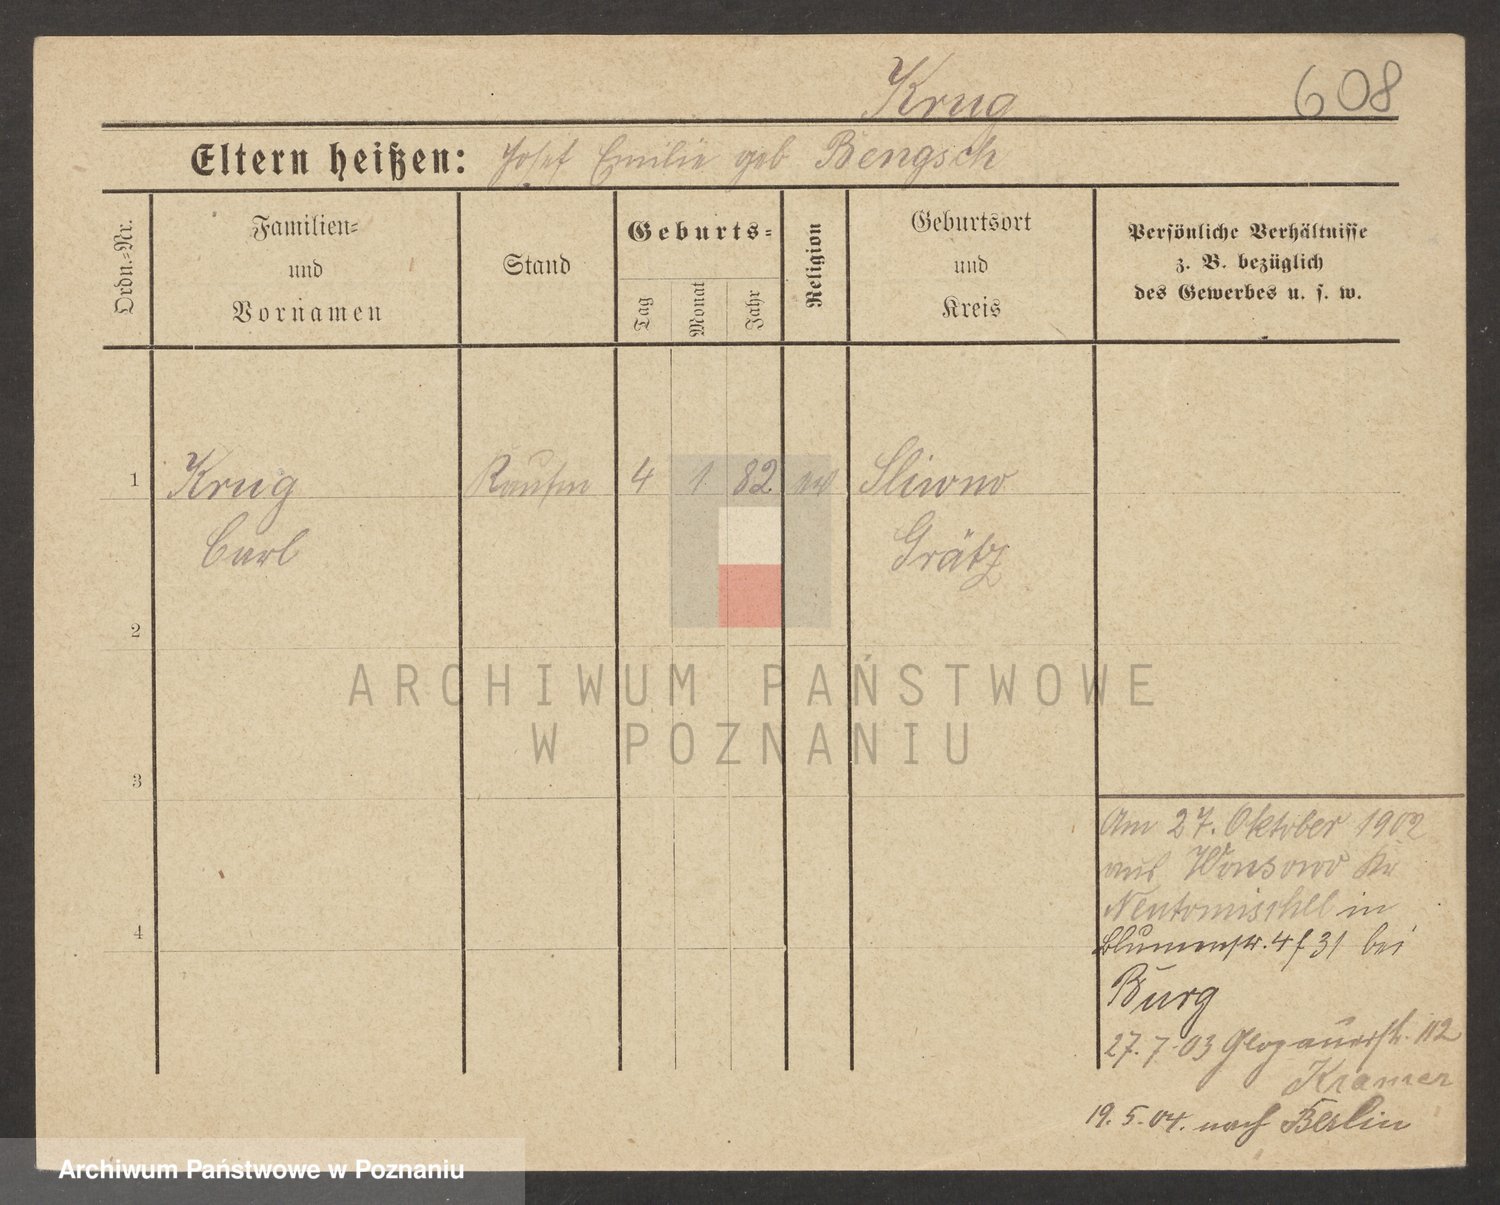 Krug
608
Eltern heißen: Josef Emilie geb Bengsch
Ordn.-Nr.
Familien-
und
Vornamen
Stand
Geburts-
Tag
Monat
Jahr
Religion
Geburtsort
und
Kreis
Persönliche Verhältnisse
z. B. bezüglich
des Gewerbes u. s. w.
1 Krug Kaufm 4 1. 82 Sliwno
Carl Grätz
2
3
4
Am 27. Oktober 1902
aus Wonsowo Kr
Neutomischel in
Blumenstr. 4 f 31 bei
Burg
27. 7. 03 Glogauerstr. 112
Kramer
19. 5. 04. nach Berlin
ARCHIWUM PAŃSTWOWE
W POZNANIU
Archiwum Państwowe w Poznaniu